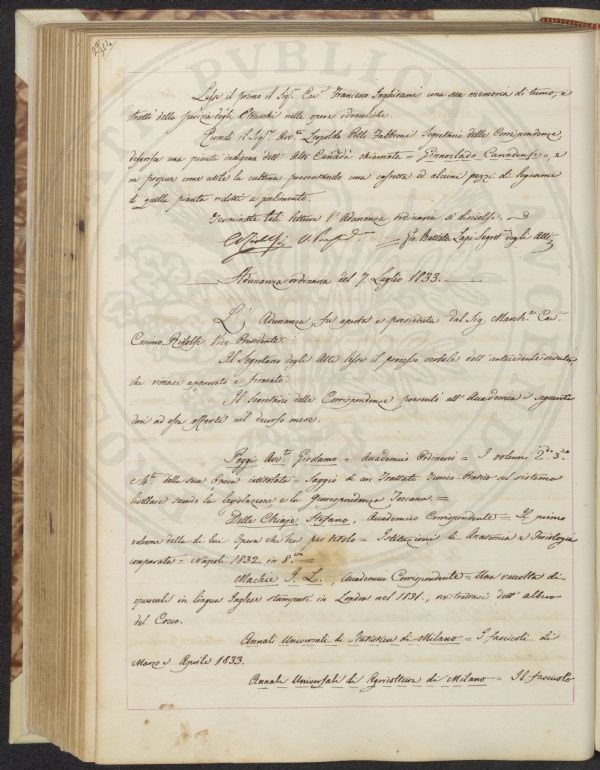 Lesse il primo il Sig.r Cav.r Francesco Inghirami una sua memoria di turno, e
trattò della perizia degli Etruschi nelle opere idrauliche.
Quindi il Sig.r Avv.to Leopoldo Pelli Fabbroni Segretario delle Corrispondenze,
descrisse una pianta indigena dell' Alto Canadà chiamata = Ginnoclado Canadense, e
ne propose come utile la cultura presentando una cassetta ed alcuni pezzi di legname
di quella pianta ridotti a pulimento.
Terminate tali letture l'Adunanza ordinaria si disciolse.
C. Ridolfi V. Presid.e Gio. Batista Lapi Segret.o degli Atti
Adunanza ordinaria del 7. Luglio 1833.
L' Adunanza fu aperta e presieduta dal Sig. March.e Cav.
Cosimo Ridolfi Vice Presidente.
Il Segretario degli Atti lesse il processo verbale dell' antecedente seduta,
che rimase approvato e firmato.
Il Segretario delle Corrispondenze presentò all' Accademia i seguenti
doni ad essa offerti nel decorso mese.
Poggi Avv.to Girolamo = Accademico Ordinario = I volumi 2.do 3.zo
e 4.to della sua Opera intitolata = Saggio di un Trattato Teorico-Pratico sul sistema
livellare secondo la legislazione e la Giurisprudenza Toscana =
Delle Chiaje Stefano, Accademico Corrispondente = Il primo
volume della di lui Opera che ha per titolo = Istituzioni di Anatomia e Fisiologia
comparata = Napoli 1832. in 8.vo =
J. L., Accademico Corrispondente = Una raccolta di
opuscoli in lingua Inglese stampati in Londra nel 1831., dell' albero
del Cocco.
Annali Universali di Statistica di Milano = I fascicoli di
Marzo e Aprile 1833.
Annali Universali di Agricoltura di Milano = Il fascicolo